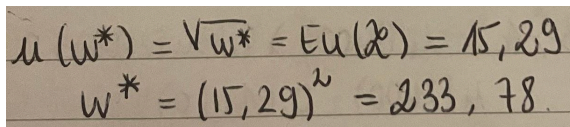 u(w*) = √w* = Eu(x) = 15,29
w* = (15,29)² = 233,78.